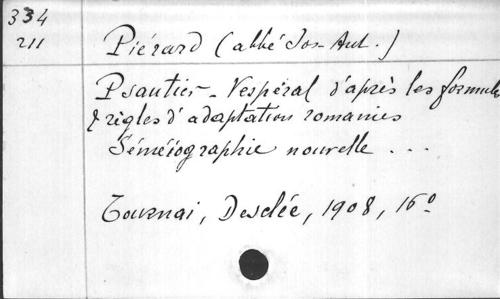 334
211
Piérard (abbé Jos-Ant.)
Psautier-Vespéral d'après les formules
& règles d'adaptation romanies
Séméiographie nouvelle ...
Tournai, Desclée, 1908, 16º